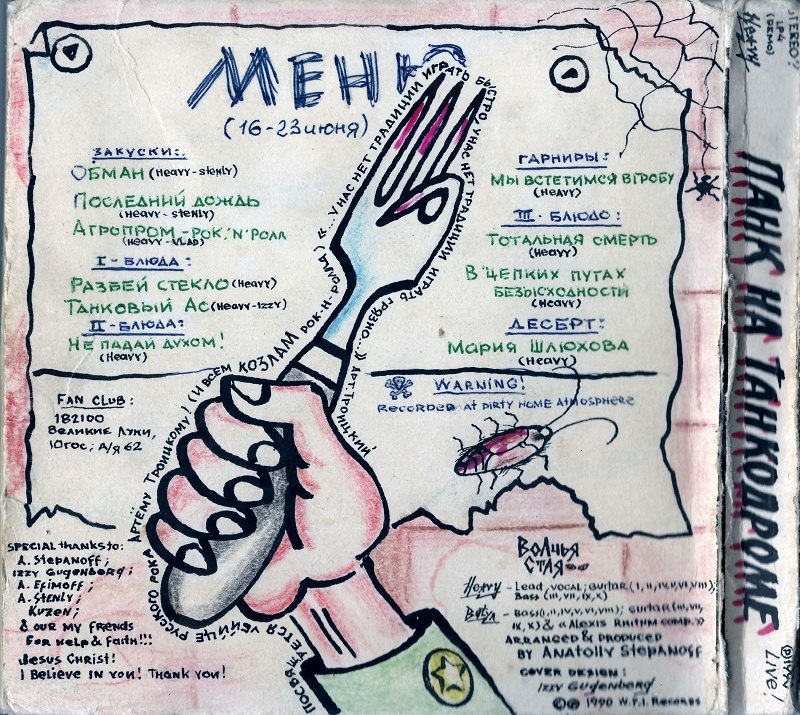 МЕНЮ
(16-23 июня)
ЗАКУСКИ:
ОБМАН (HEAVY-STENLY)
ПОСЛЕДНИЙ ДОЖДЬ
(HEAVY-STENLY)
АГРОПРОМ-РОК,'N'РОЛЛ
(HEAVY-VLAD)
I-БЛЮДА:
РАЗБЕЙ СТЕКЛО (HEAVY)
ТАНКОВЫЙ АС (HEAVY-IZZY)
II-БЛЮДА:
НЕ ПАДАЙ ДУХОМ!
(HEAVY)
ГАРНИРЫ:
МЫ ВСТЕТИМСЯ В ГРОБУ
(HEAVY)
III-БЛЮДО:
ТОТАЛЬНАЯ СМЕРТЬ
(HEAVY)
В ЦЕПКИХ ПУТАХ
БЕЗЫСХОДНОСТИ
(HEAVY)
ДЕСЕРТ:
МАРИЯ ШЛЮХОВА
(HEAVY)
FAN CLUB:
182100
ВЕЛИКИЕ ЛУКИ,
ЮГОС; А/Я 62
WARNING!
RECORDED AT DIRTY HOME ATMOSPHERE
ПОСВЯЩАЕТСЯ УБИЙЦЕ РУССКОГО РОКА АРТЁМУ ТРОИЦКОМУ! (И ВСЕМ КОЗЛАМ РОК-Н-РОЛЛА)
«...У НАС НЕТ ТРАДИЦИИ ИГРАТЬ БЫСТРО, У НАС НЕТ ТРАДИЦИИ ИГРАТЬ ГРЯЗНО...» АРТ. ТРОИЦКИЙ
SPECIAL THANKS TO:
A. STEPANOFF;
IZZY GUGENBERG;
A. EFIMOFF;
A. STENLY;
KUZEN;
& OUR MY FRENDS
FOR HELP & FAITH!!!
JESUS CHRIST!
I BELIEVE IN YOU! THANK YOU!
ВОЛЧЬЯ
СТАЯ
HEAVY - LEAD, VOCAL; GUITAR (I, II, IV, V, VI, VIII);
BASS (III, VII, IX, X)
BASS (I, II, IV, V, VI, VIII); GUITAR (III, VII,
IX, X) & «ALEXIS RHITHM COMP.»
ARRANGED & PRODUCED
BY ANATOLLY STEPANOFF
COVER DESIGN:
IZZY GUGENBERG
©℗ 1990 W.F.I. RECORDS
LP4
(DEMO)
HEAVY
ПАНК НА ТАНКОДРОМЕ
LIVE!